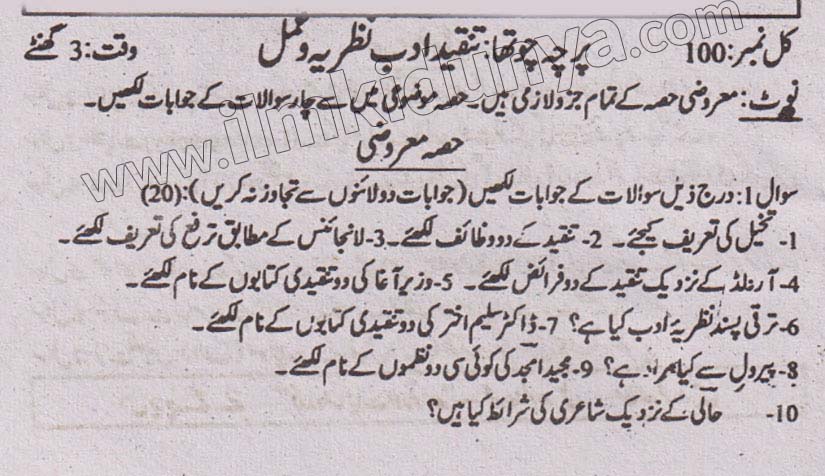 کل نمبر: 100 پرچہ چوتھا: تنقید ادب نظریہ و عمل وقت: 3 گھنٹے
نوٹ: معروضی حصہ کے تمام جزو لازمی ہیں۔ حصہ موضوعی میں سے چار سوالات کے جوابات لکھیں۔
حصہ معروضی
سوال 1: درج ذیل سوالات کے جوابات لکھیں (جوابات دو لائنوں سے تجاوز نہ کریں): (20)
1- تخیل کی تعریف کیجئے۔ 2- تنقید کے دو وظائف لکھئے۔ 3- لانجائنس کے مطابق ترفع کی تعریف لکھئے۔
4- آرنلڈ کے نزدیک تنقید کے دو فرائض لکھئے۔ 5- وزیر آغا کی دو تنقیدی کتابوں کے نام لکھئے۔
6- ترقی پسند نظریۂ ادب کیا ہے؟ 7- ڈاکٹر سلیم اختر کی دو تنقیدی کتابوں کے نام لکھئے۔
8- پیرول سے کیا مراد ہے؟ 9- مجید امجد کی کوئی سی دو نظموں کے نام لکھئے۔
10- حالی کے نزدیک شاعری کی شرائط کیا ہیں؟
www.ilmkidunya.com